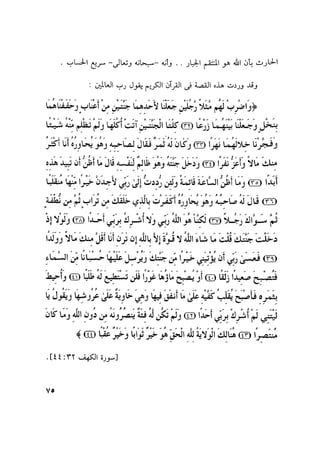 الحارث بأن الله هو المنتقم الجبار . . وأنه -سبحانه وتعالى- سريع الحساب .
وقد وردت هذه القصة فى القرآن الكريم يقول رب العالمين :
﴿وَاضْرِبْ لَهُم مَّثَلاً رَّجُلَيْنِ جَعَلْنَا لأَحَدِهِمَا جَنَّتَيْنِ مِنْ أَعْنَابٍ وَحَفَفْنَاهُمَا
بِنَخْلٍ وَجَعَلْنَا بَيْنَهُمَا زَرْعًا (٣٢) كِلْتَا الْجَنَّتَيْنِ آتَتْ أُكُلَهَا وَلَمْ تَظْلِم مِّنْهُ شَيْئًا
وَفَجَّرْنَا خِلالَهُمَا نَهَرًا (٣٣) وَكَانَ لَهُ ثَمَرٌ فَقَالَ لِصَاحِبِهِ وَهُوَ يُحَاوِرُهُ أَنَا أَكْثَرُ
مِنكَ مَالاً وَأَعَزُّ نَفَرًا (٣٤) وَدَخَلَ جَنَّتَهُ وَهُوَ ظَالِمٌ لِّنَفْسِهِ قَالَ مَا أَظُنُّ أَن تَبِيدَ هَذِهِ
أَبَدًا (٣٥) وَمَا أَظُنُّ السَّاعَةَ قَائِمَةً وَلَئِن رُّدِدتُّ إِلَىٰ رَبِّي لأَجِدَنَّ خَيْرًا مِّنْهَا مُنقَلَبًا
(٣٦) قَالَ لَهُ صَاحِبُهُ وَهُوَ يُحَاوِرُهُ أَكَفَرْتَ بِالَّذِي خَلَقَكَ مِن تُرَابٍ ثُمَّ مِن نُّطْفَةٍ
ثُمَّ سَوَّاكَ رَجُلاً (٣٧) لَّكِنَّا هُوَ اللَّهُ رَبِّي وَلا أُشْرِكُ بِرَبِّي أَحَدًا (٣٨) وَلَوْلا إِذْ
دَخَلْتَ جَنَّتَكَ قُلْتَ مَا شَاءَ اللَّهُ لا قُوَّةَ إِلاَّ بِاللَّهِ إِن تَرَنِ أَنَا أَقَلَّ مِنكَ مَالاً وَوَلَدًا
(٣٩) فَعَسَىٰ رَبِّي أَن يُؤْتِيَنِي خَيْرًا مِّن جَنَّتِكَ وَيُرْسِلَ عَلَيْهَا حُسْبَانًا مِّنَ السَّمَاءِ
فَتُصْبِحَ صَعِيدًا زَلَقًا (٤٠) أَوْ يُصْبِحَ مَاؤُهَا غَوْرًا فَلَن تَسْتَطِيعَ لَهُ طَلَبًا (٤١) وَأُحِيطَ
بِثَمَرِهِ فَأَصْبَحَ يُقَلِّبُ كَفَّيْهِ عَلَىٰ مَا أَنفَقَ فِيهَا وَهِيَ خَاوِيَةٌ عَلَىٰ عُرُوشِهَا وَيَقُولُ يَا
لَيْتَنِي لَمْ أُشْرِكْ بِرَبِّي أَحَدًا (٤٢) وَلَمْ تَكُن لَّهُ فِئَةٌ يَنصُرُونَهُ مِن دُونِ اللَّهِ وَمَا كَانَ
مُنتَصِرًا (٤٣) هُنَالِكَ الْوَلايَةُ لِلَّهِ الْحَقِّ هُوَ خَيْرٌ ثَوَابًا وَخَيْرٌ عُقْبًا (٤٤) ﴾
[سورة الكهف ٣٢ : ٤٤].
٧٥